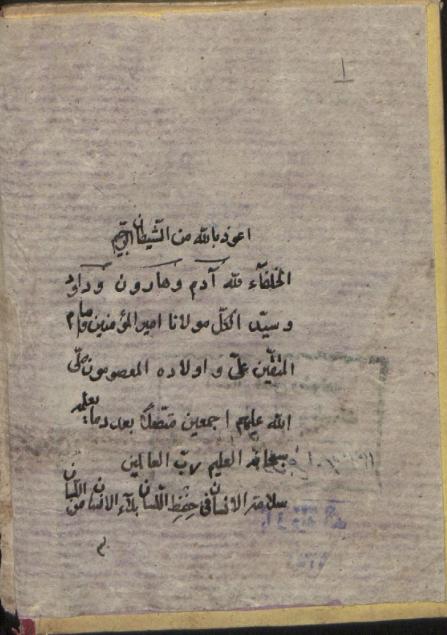 ١
اعوذ بالله من الشيطان الرجيم
الخلفآء للّه آدم و هارون و داود
و سيّد الكلّ مولانا امير المؤمنين و امام
المتقّين علىّ و اولاده المعصومون صلّى
الله عليهم اجمعين متّصلًا بعدد ما يعلمه
العليم ربّ العالمين
سلامة الانسان فى حِفْظِ اللّسان بلآء الانسان من اللّسان
م